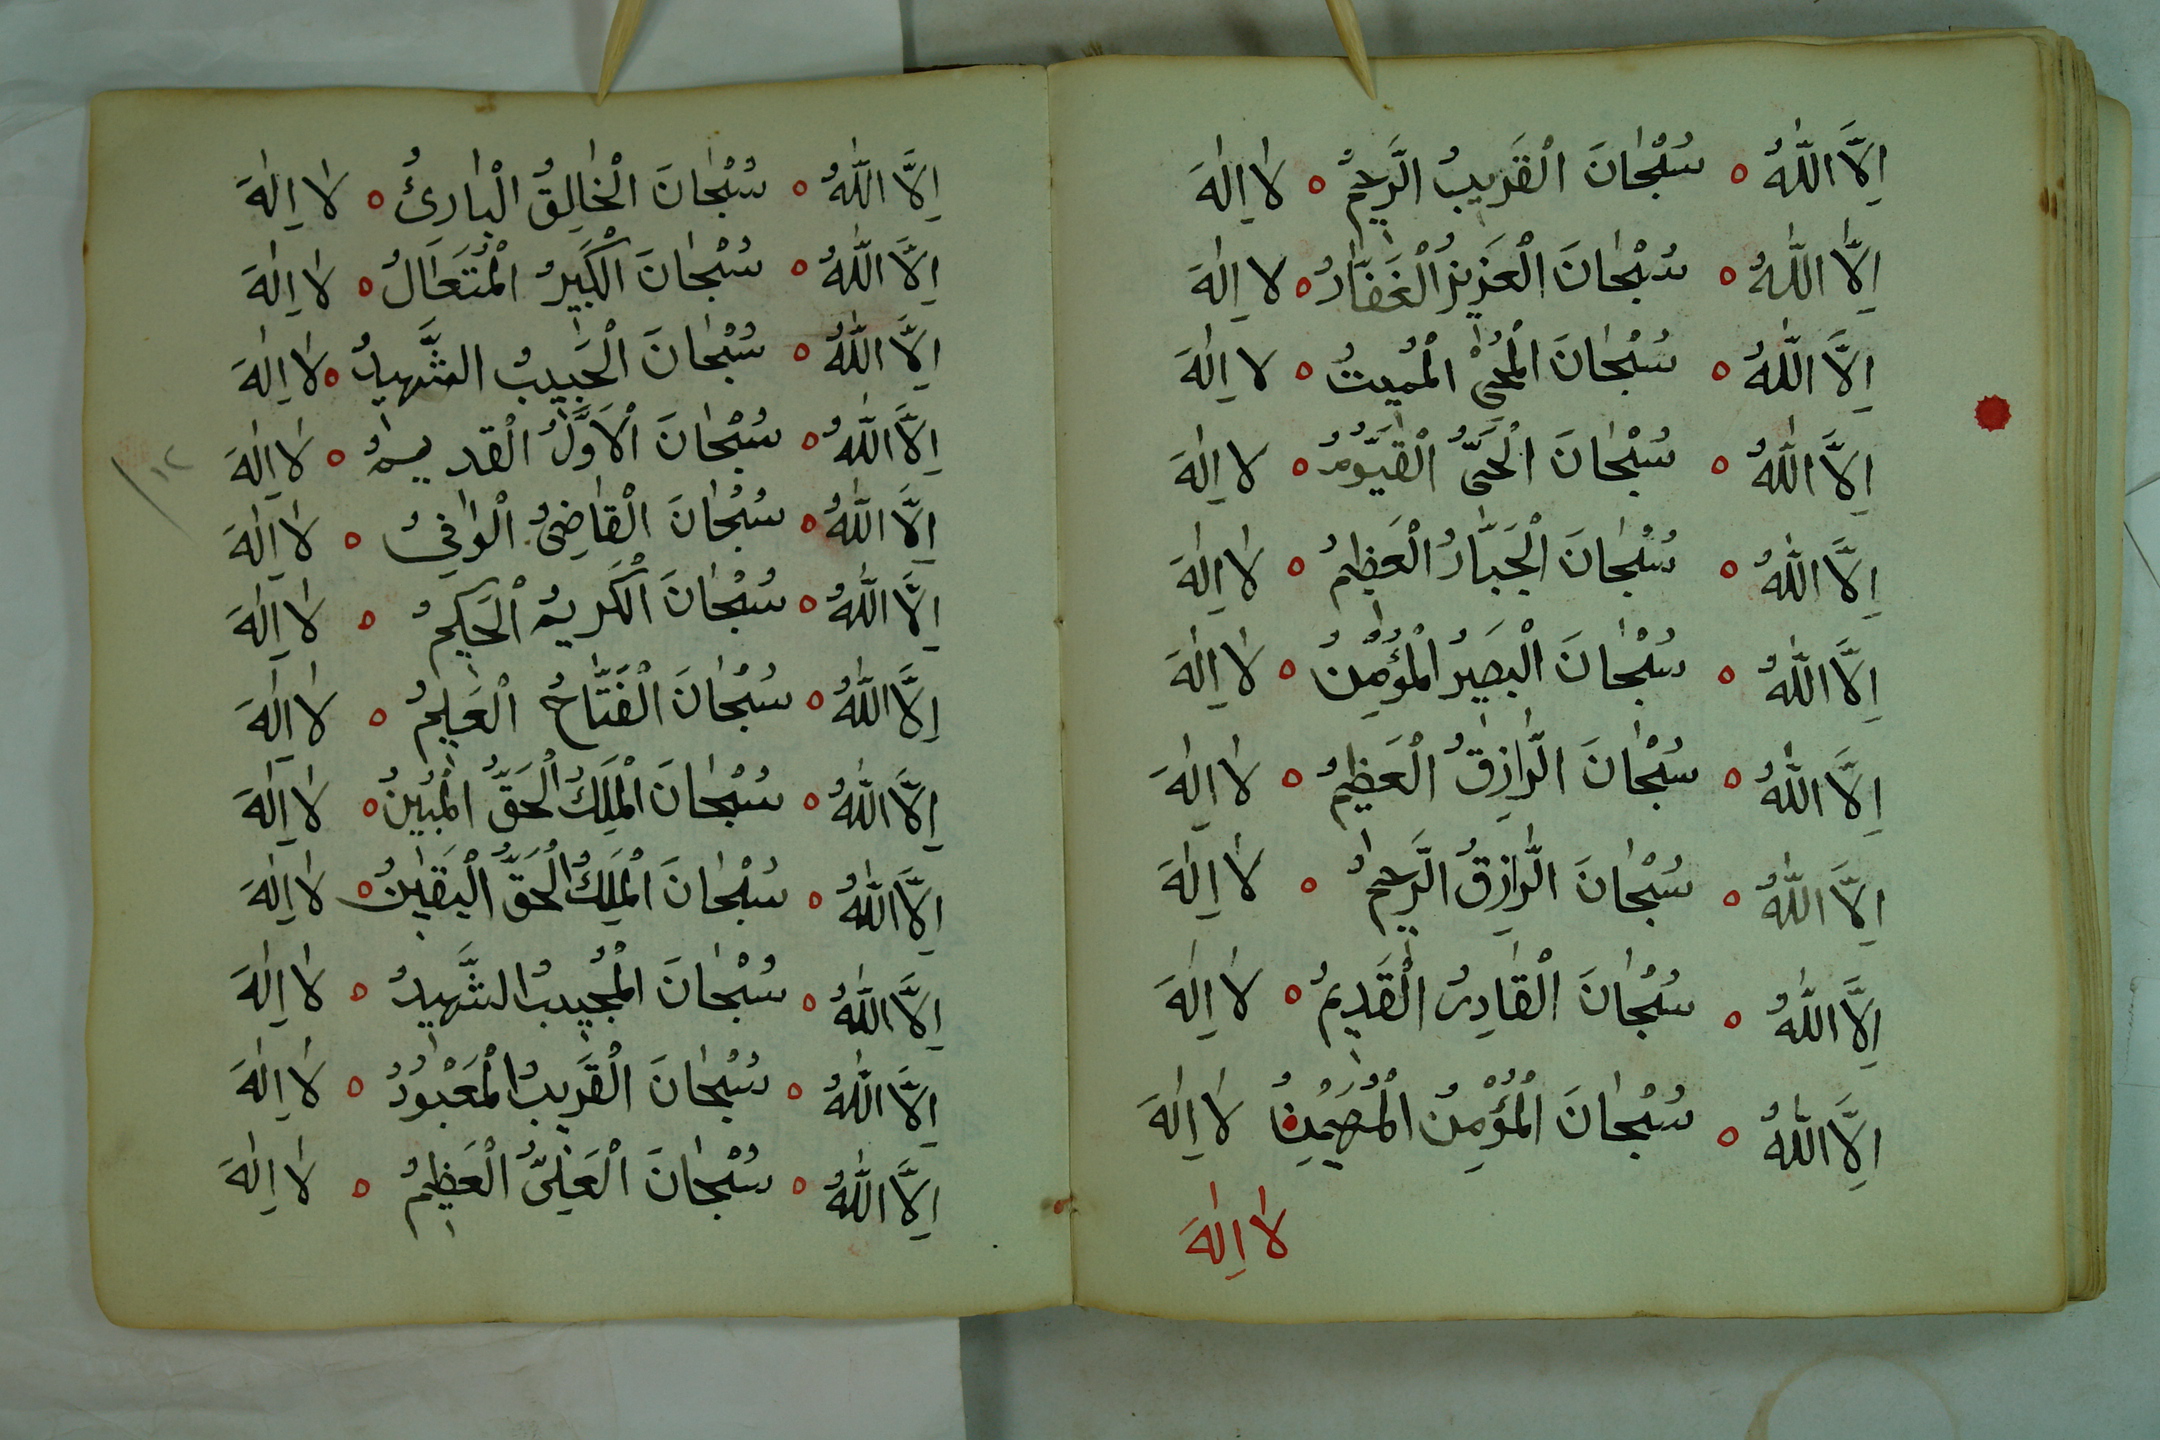 اِلَّا اللّٰهُ ۝ سُبْحٰانَ الْقَرٖيبُ الرَّحٖيمُ ۝ لٰا اِلٰهَ
اِلَّا اللّٰهُ ۝ سُبْحٰانَ الْعَزٖيزُ الْغَفّٰارُ ۝ لا اِلٰهَ
اِلَّا اللّٰهُ ۝ سُبْحٰانَ الْمُحْيٖى الْمُمٖيتُ ۝ لٰا اِلٰهَ
اِلَّا اللّٰهُ ۝ سُبْحٰانَ الْحَىُّ الْقَيُّومُ ۝ لا اِلٰهَ
اِلَّا اللّٰهُ ۝ سُبْحٰانَ الْجَبّٰارُ الْعَظٖيمُ ۝ لٰا اِلٰهَ
اِلَّا اللّٰهُ ۝ سُبْحٰانَ الْبَصٖيرُ الْمُؤْمِنُ ۝ لٰا اِلٰهَ
اِلَّا اللّٰهُ ۝ سُبْحٰانَ الرّٰازِقُ الْعَظٖيمُ ۝ لٰا اِلٰهَ
اِلَّا اللّٰهُ ۝ سُبْحٰانَ الرّٰازِقُ الرَّحٖيمُ ۝ لٰا اِلٰهَ
اِلَّا اللّٰهُ ۝ سُبْحٰانَ الْقٰادِرُ الْقَدٖيمُ ۝ لٰا اِلٰهَ
اِلَّا اللّٰهُ ۝ سُبْحٰانَ الْمُؤْمِنُ الْمُهَيْمِنُ ۝ لٰا اِلٰهَ
لٰا اِلٰهَ
اِلَّا اللّٰهُ ۝ سُبْحٰانَ الْخٰالِقُ الْبٰارِئُ ۝ لٰا اِلٰهَ
اِلَّا اللّٰهُ ۝ سُبْحٰانَ الْكَبٖيرُ الْمُتَعَالُ ۝ لٰا اِلٰهَ
اِلَّا اللّٰهُ ۝ سُبْحٰانَ الْحَبٖيبُ الشَّهٖيدُ ۝ لٰا اِلٰهَ
اِلَّا اللّٰهُ ۝ سُبْحٰانَ الْاَوَّلُ الْقَدٖيمُ ۝ لٰا اِلٰهَ
اِلَّا اللّٰهُ ۝ سُبْحٰانَ الْقٰاضِىُ الْوٰافِىُ ۝ لٰا اِلٰهَ
اِلَّا اللّٰهُ ۝ سُبْحٰانَ الْكَرٖيمُ الْحَكٖيمُ ۝ لٰا اِلٰهَ
اِلَّا اللّٰهُ ۝ سُبْحٰانَ الْفَتّٰاحُ الْعَلٖيمُ ۝ لٰا اِلٰهَ
اِلَّا اللّٰهُ ۝ سُبْحٰانَ الْمَلِكُ الْحَقُّ الْمُبٖينُ ۝ لٰا اِلٰهَ
اِلَّا اللّٰهُ ۝ سُبْحٰانَ الْمَلِكُ الْحَقُّ الْيَقٖينُ ۝ لٰا اِلٰهَ
اِلَّا اللّٰهُ ۝ سُبْحٰانَ الْمُجٖيبُ الشَّهٖيدُ ۝ لٰا اِلٰهَ
اِلَّا اللّٰهُ ۝ سُبْحٰانَ الْقَرٖيبُ الْمَعْبُودُ ۝ لٰا اِلٰهَ
اِلَّا اللّٰهُ ۝ سُبْحٰانَ الْعَلِىُّ الْعَظٖيمُ ۝ لٰا اِلٰهَ
١٢